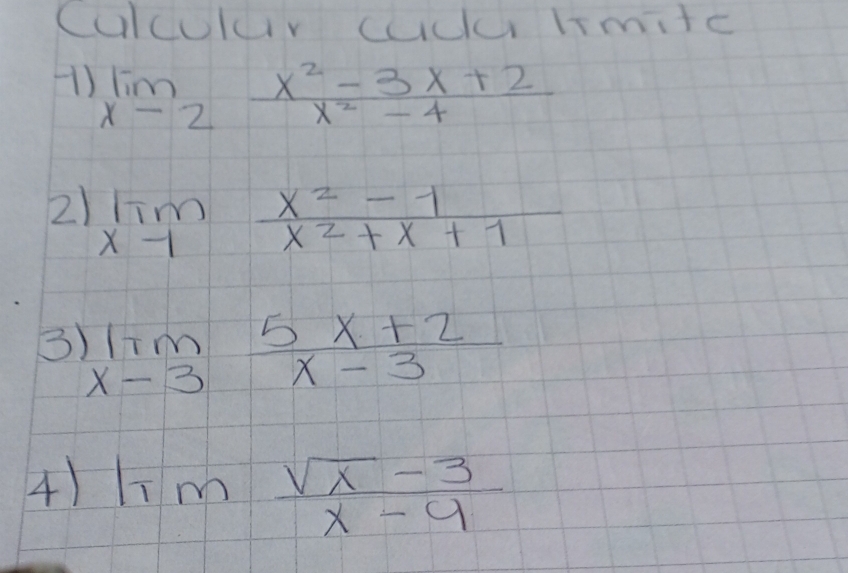 Calcular cada limite
1) lim x² - 3x + 2
x - 2 x² - 4
2) lim x² - 1
x - 1 x² + x + 1
3) lim 5x + 2
x - 3 x - 3
4) lim √x - 3
x - 9